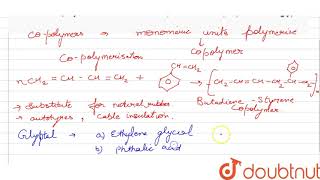 co-polymers → monomeric units polymerise
↓
copolymer
co-polymerisation
CH=CH₂
nCH₂ = CH - CH = CH₂ + → [CH₂-CH=CH-CH₂-CH-CH₂]
n
→ substitute for natural rubber
Butadiene - Styrene
copolymer
→ autotyres, cable insulation.
Glyptal → a) Ethylene glycol
b) Phthalic acid
doubtnut